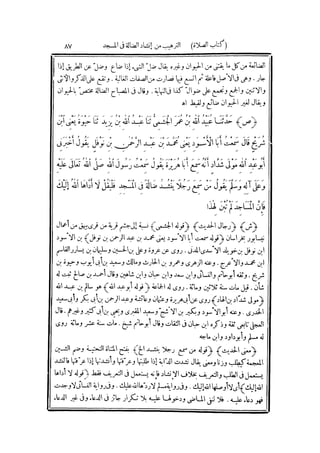 (كتاب الصلاة) الترهيب من إنشاد الضالة فى المسجد ٨٧
الضائعة من كل ما يقتنى من الحيوان وغيره يقال ضل الشىء إذا ضاع وضل عن الطريق إذا
حار. وهى فى الأصل فاعلة ثم اتسع فيها فصارت من الصفات الغالبة. وتقع على الذكر والأنثى
والاثنين والجمع وتجمع على ضوال كذا فى النهاية. وقال فى المصباح الضالة مختص بالحيوان
ويقال لغير الحيوان ضائع ولقيط اهـ
(ص) حَدَّثَنَا عُبَيْدُ اللهِ بْنُ عُمَرَ الْجُشَمِىُّ ثَنَا عَبْدُ اللهِ بْنُ يَزِيدَ ثَنَا حَيْوَةُ يَعْنِى ابْنَ
شُرَيْحٍ قَالَ سَمِعْتُ أَبَا الْأَسْوَدِ يَعْنِى مُحَمَّدَ بْنَ عَبْدِ الرَّحْمَنِ بْنِ نَوْفَلٍ يَقُولُ أَخْبَرَنِى
أَبُو عَبْدِ اللهِ مَوْلَى شَدَّادٍ أَنَّهُ سَمِعَ أَبَا هُرَيْرَةَ يَقُولُ سَمِعْتُ رَسُولَ اللهِ صَلَّى اللهُ تَعَالَى عَلَيْهِ
وَعَلَى آلِهِ وَسَلَّمَ يَقُولُ مَنْ سَمِعَ رَجُلًا يَنْشُدُ ضَالَّةً فِى الْمَسْجِدِ فَلْيَقُلْ لَا أَدَّاهَا اللهُ إِلَيْكَ
فَإِنَّ الْمَسَاجِدَ لَمْ تُبْنَ لِهَذَا
(ش) (رجال الحديث) (قوله الجشمى) نسبة إلى جشم قرية من قرى بيهق من أعمال
نيسابور بخراسان (قوله سمعت أبا الأسود يعنى محمد بن عبد الرحمن بن نوفل) بن الأسود
ابن نوفل بن خويلد الأسدى المدنى. روى عن عروة وعلى بن الحسين وسليمان بن يسار والقاسم
ابن محمد والأعرج. وعنه الزهرى وعمرو بن الحارث ومالك وسعيد بن أبى أيوب وحيوة بن
شريح. وثقه أبو حاتم والنسائى وابن سعد وابن حبان وابن شاهين وقال أحمد بن صالح ثبت له
شأن. قيل مات سنة ثلاثين ومائة. روى له الجماعة (قوله أبو عبد الله) هو سالم بن عبد الله
(مولى شداد بن الهاد) روى عن أبى هريرة وعثمان وعائشة وعبد الرحمن بن أبى بكر وأبى سعيد
الخدرى. وعنه أبو الأسود وبكير بن الأشج وسعيد المقبرى ويحيى بن أبى كثير وغيرهم. قال
العجلى تابعى ثقة وذكره ابن حبان فى الثقات وقال أبو حاتم شيخ. مات سنة عشر ومائة روى
له مسلم وأبو داود وابن ماجه
(معنى الحديث) (قوله من سمع رجلا ينشد الخ) بفتح المثناة التحتية وضم الشين
المعجمة كيطلب وزنا ومعنى يقال نشدت الدابة إذا طلبتها وأنشدتها إذا عرفتها فالنشد
يستعمل فى الطلب والتعريف بخلاف الإنشاد فإنه يستعمل فى التعريف فقط (قوله لا أداها
الله إليك) أى لا أوصلها الله إليك. وفى رواية مسلم لا ردها الله عليك. وفى رواية النسائى لا وجدت
فهو دعاء عليه. فلا لنفى الماضى ودخولها عليه بلا تكرار جائز فى الدعاء وفى غير الدعاء